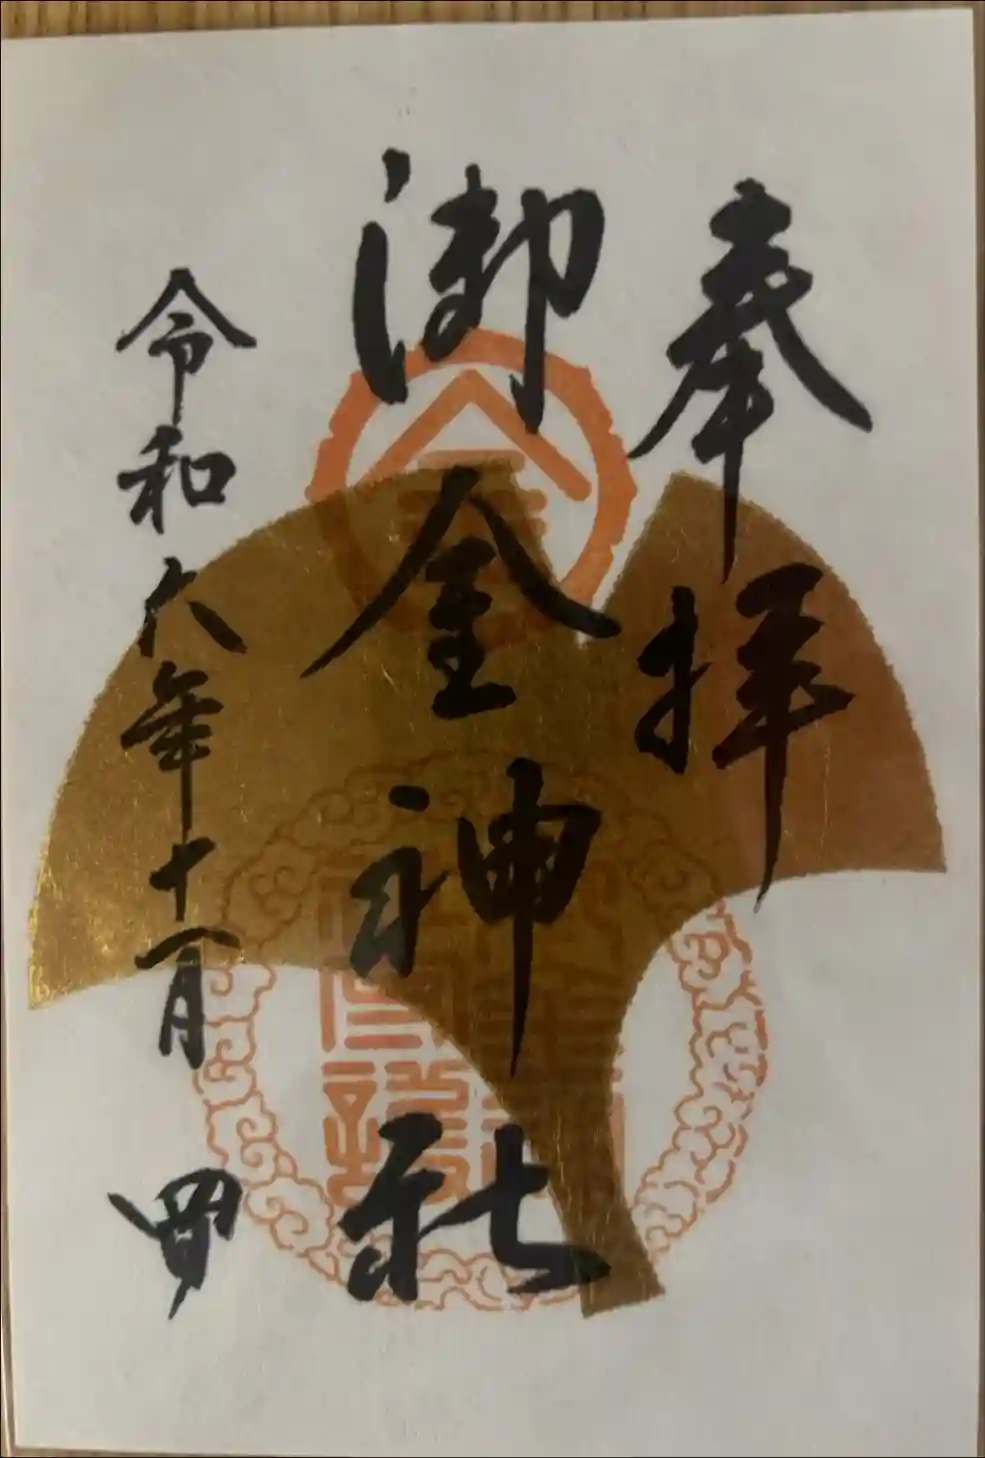 奉拝
御金神社
令和六年十一月四日